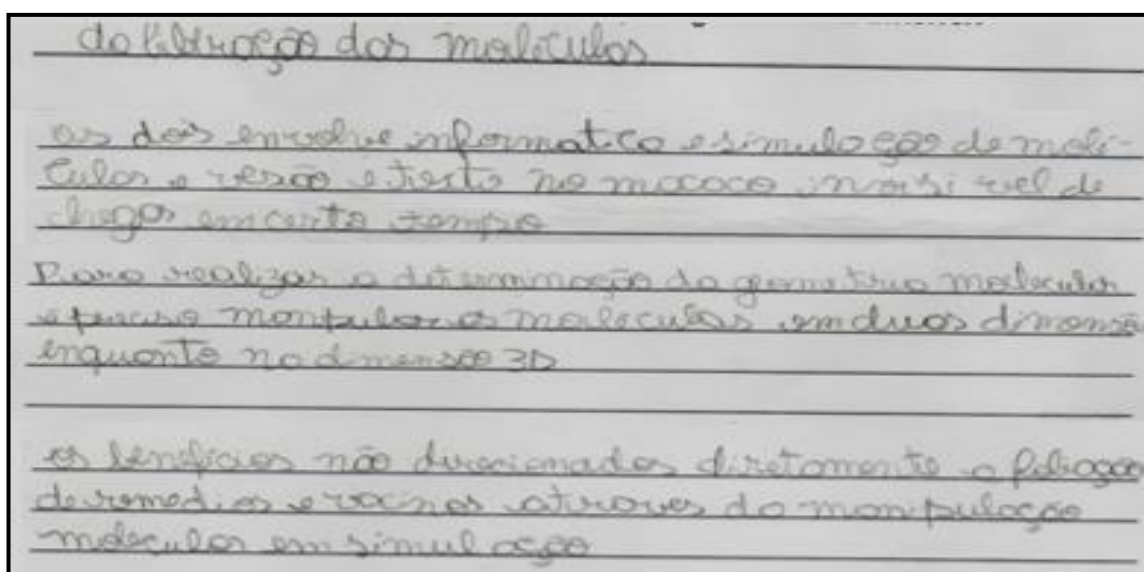 da filtração das moléculas
os dois envolve informatica e simulação de molé-
culas e versão e teste no macaco de
chegar em certo tempo
Para realizar a determinação da geometria molecular
e preciso manipular as moleculas em duas dimensõ
enquanto na dimensão 3D
os beneficios não direcionados diretamente a
de remedios e vacinas atraves da manipulação
molecular em simulação